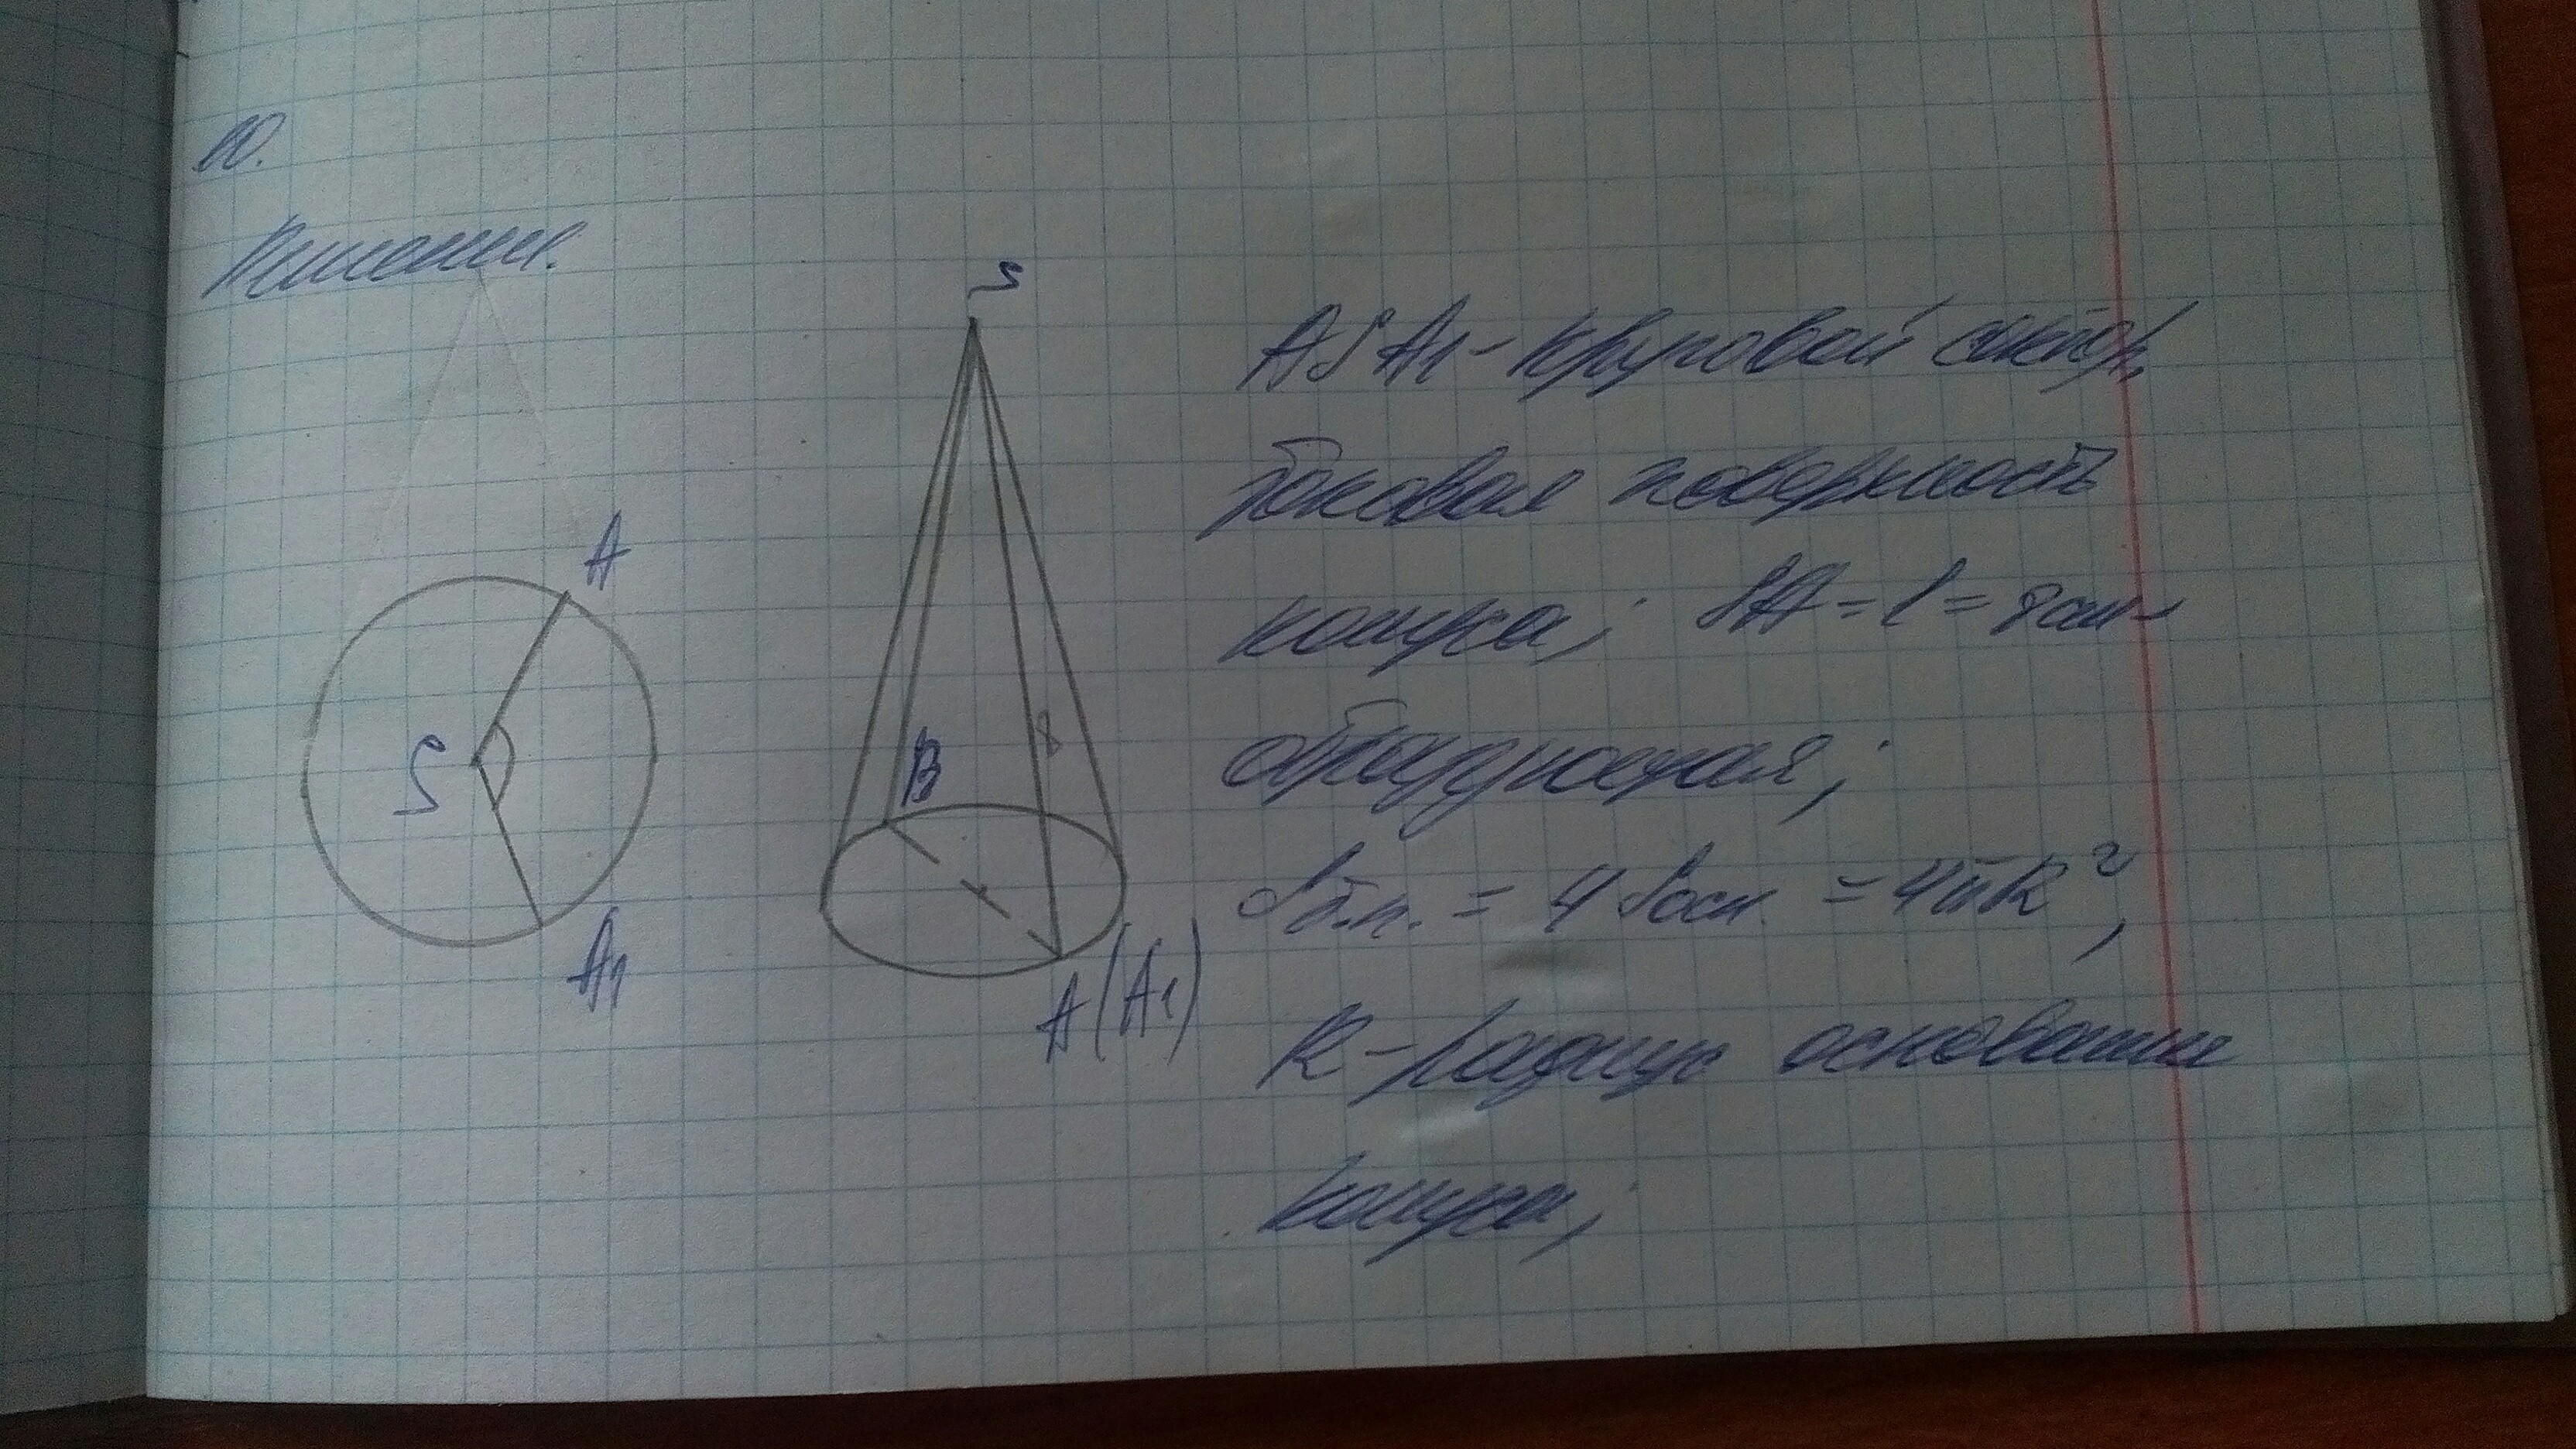 10.
Решение.
S
A
S
A1
B
8
A(A1)
ASA1 - круговой сектор,
боковая поверхность
конуса; SA = l = 8см -
образующая;
Sб.п. = 4 Sосн. = 4πR²,
R - радиус основания
конуса;